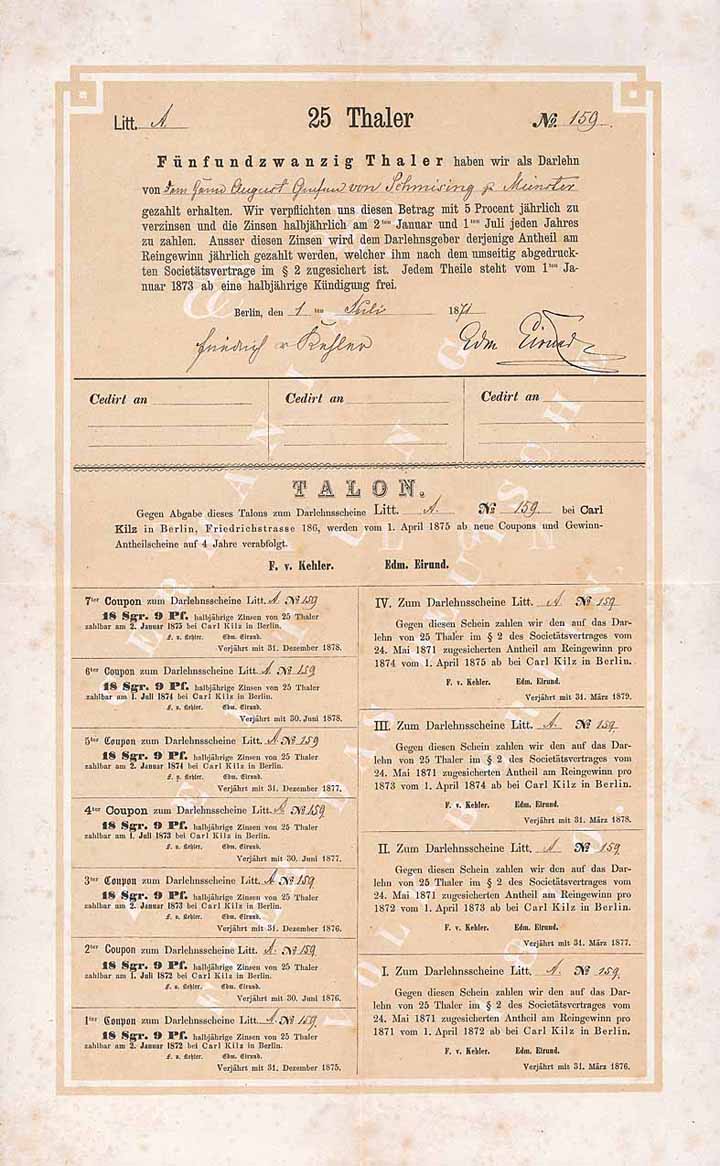 Litt. A 25 Thaler № 159
Fünfundzwanzig Thaler haben wir als Darlehn
von dem Herrn August Grafen von Schmising z. Münster
gezahlt erhalten. Wir verpflichten uns diesen Betrag mit 5 Procent jährlich zu
verzinsen und die Zinsen halbjährlich am 2ten Januar und 1ten Juli jeden Jahres
zu zahlen. Ausser diesen Zinsen wird dem Darlehnsgeber derjenige Antheil am
Reingewinn jährlich gezahlt werden, welcher ihm nach dem umseitig abgedruck-
ten Societätsvertrage im § 2 zugesichert ist. Jedem Theile steht vom 1ten Ja-
nuar 1873 ab eine halbjährige Kündigung frei.
Berlin, den 1 ten Juli 1871
Friedrich v Kehler Edm. Eirund
Cedirt an Cedirt an Cedirt an
TALON.
Gegen Abgabe dieses Talons zum Darlehnsscheine Litt. A. № 159 bei Carl
Kilz in Berlin, Friedrichstrasse 186, werden vom 1. April 1875 ab neue Coupons und Gewinn-
Antheilscheine auf 4 Jahre verabfolgt.
F. v. Kehler. Edm. Eirund.
7ter Coupon zum Darlehnsscheine Litt. A № 159
18 Sgr. 9 Pf. halbjährige Zinsen von 25 Thaler
zahlbar am 2. Januar 1875 bei Carl Kilz in Berlin.
F. v. Kehler. Edm. Eirund.
Verjährt mit 31. Dezember 1878.
6ter Coupon zum Darlehnsscheine Litt. A № 159
18 Sgr. 9 Pf. halbjährige Zinsen von 25 Thaler
zahlbar am 1. Juli 1874 bei Carl Kilz in Berlin.
F. v. Kehler. Edm. Eirund.
Verjährt mit 30. Juni 1878.
5ter Coupon zum Darlehnsscheine Litt. A № 159
18 Sgr. 9 Pf. halbjährige Zinsen von 25 Thaler
zahlbar am 2. Januar 1874 bei Carl Kilz in Berlin.
F. v. Kehler. Edm. Eirund.
Verjährt mit 31. Dezember 1877.
4ter Coupon zum Darlehnsscheine Litt. A № 159
18 Sgr. 9 Pf. halbjährige Zinsen von 25 Thaler
zahlbar am 1. Juli 1873 bei Carl Kilz in Berlin.
F. v. Kehler. Edm. Eirund.
Verjährt mit 30. Juni 1877.
3ter Coupon zum Darlehnsscheine Litt. A № 159
18 Sgr. 9 Pf. halbjährige Zinsen von 25 Thaler
zahlbar am 2. Januar 1873 bei Carl Kilz in Berlin.
F. v. Kehler. Edm. Eirund.
Verjährt mit 31. Dezember 1876.
2ter Coupon zum Darlehnsscheine Litt. A. № 159
18 Sgr. 9 Pf. halbjährige Zinsen von 25 Thaler
zahlbar am 1. Juli 1872 bei Carl Kilz in Berlin.
F. v. Kehler. Edm. Eirund.
Verjährt mit 30. Juni 1876.
1ter Coupon zum Darlehnsscheine Litt. A. № 159.
18 Sgr. 9 Pf. halbjährige Zinsen von 25 Thaler
zahlbar am 2. Januar 1872 bei Carl Kilz in Berlin.
F. v. Kehler. Edm. Eirund.
Verjährt mit 31. Dezember 1875.
IV. Zum Darlehnsscheine Litt. A № 159
Gegen diesen Schein zahlen wir den auf das Dar-
lehn von 25 Thaler im § 2 des Societätsvertrages vom
24. Mai 1871 zugesicherten Antheil am Reingewinn pro
1874 vom 1. April 1875 ab bei Carl Kilz in Berlin.
F. v. Kehler. Edm. Eirund.
Verjährt mit 31. März 1879.
III. Zum Darlehnsscheine Litt. A. № 159.
Gegen diesen Schein zahlen wir den auf das Dar-
lehn von 25 Thaler im § 2 des Societätsvertrages vom
24. Mai 1871 zugesicherten Antheil am Reingewinn pro
1873 vom 1. April 1874 ab bei Carl Kilz in Berlin.
F. v. Kehler. Edm. Eirund.
Verjährt mit 31. März 1878.
II. Zum Darlehnsscheine Litt. A № 159
Gegen diesen Schein zahlen wir den auf das Dar-
lehn von 25 Thaler im § 2 des Societätsvertrages vom
24. Mai 1871 zugesicherten Antheil am Reingewinn pro
1872 vom 1. April 1873 ab bei Carl Kilz in Berlin.
F. v. Kehler. Edm. Eirund.
Verjährt mit 31. März 1877.
I. Zum Darlehnsscheine Litt. A. № 159.
Gegen diesen Schein zahlen wir den auf das Dar-
lehn von 25 Thaler im § 2 des Societätsvertrages vom
24. Mai 1871 zugesicherten Antheil am Reingewinn pro
1871 vom 1. April 1872 ab bei Carl Kilz in Berlin.
F. v. Kehler. Edm. Eirund.
Verjährt mit 31. März 1876.